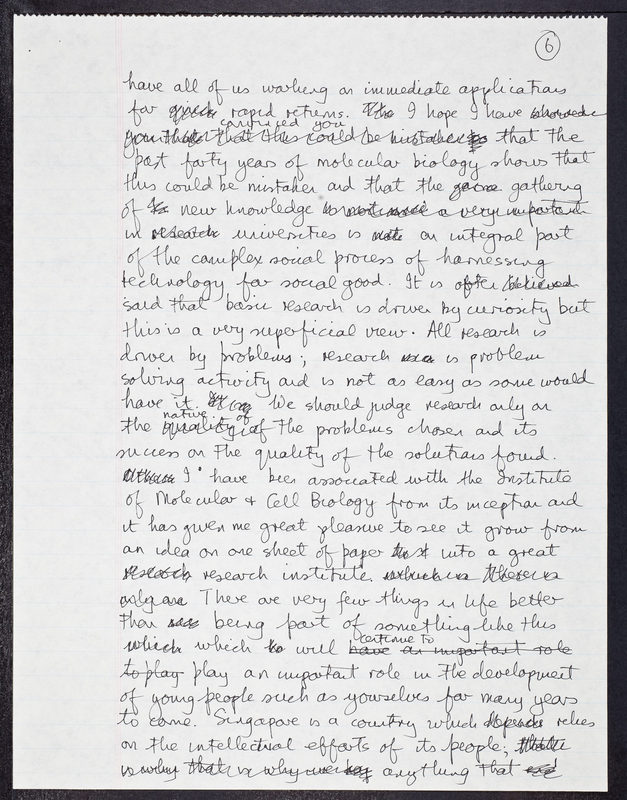 6
have all of us working on immediate applications
for quick rapid returns. The I hope I have showed
convinced you
you that that this could be mistaken so that the
past forty years of molecular biology shows that
this could be mistaken and that the gaining gathering
of new knowledge is not a very important
in research universities is an integral part
of the complex social process of harnessing
technology for social good. It is often believed
said that basic research is driven by curiosity but
this is a very superficial view. All research is
driven by problems; research is problem
solving activity and is not as easy as some would
have it. We should judge research only on
native of
the quality of the problems chosen and its
success on the quality of the solutions found.
I have been associated with the Institute
of Molecular & Cell Biology from its inception and
it has given me great pleasure to see it grow from
an idea on one sheet of paper into a great
research research institute. which is There is
only one There are very few things in life better
than being part of something like this
continue to
which which will have an important role
to play play an important role in the development
of young people such as yourselves for many years
to come. Singapore is a country which depends relies
on the intellectual efforts of its people; that
is why that is why anything that